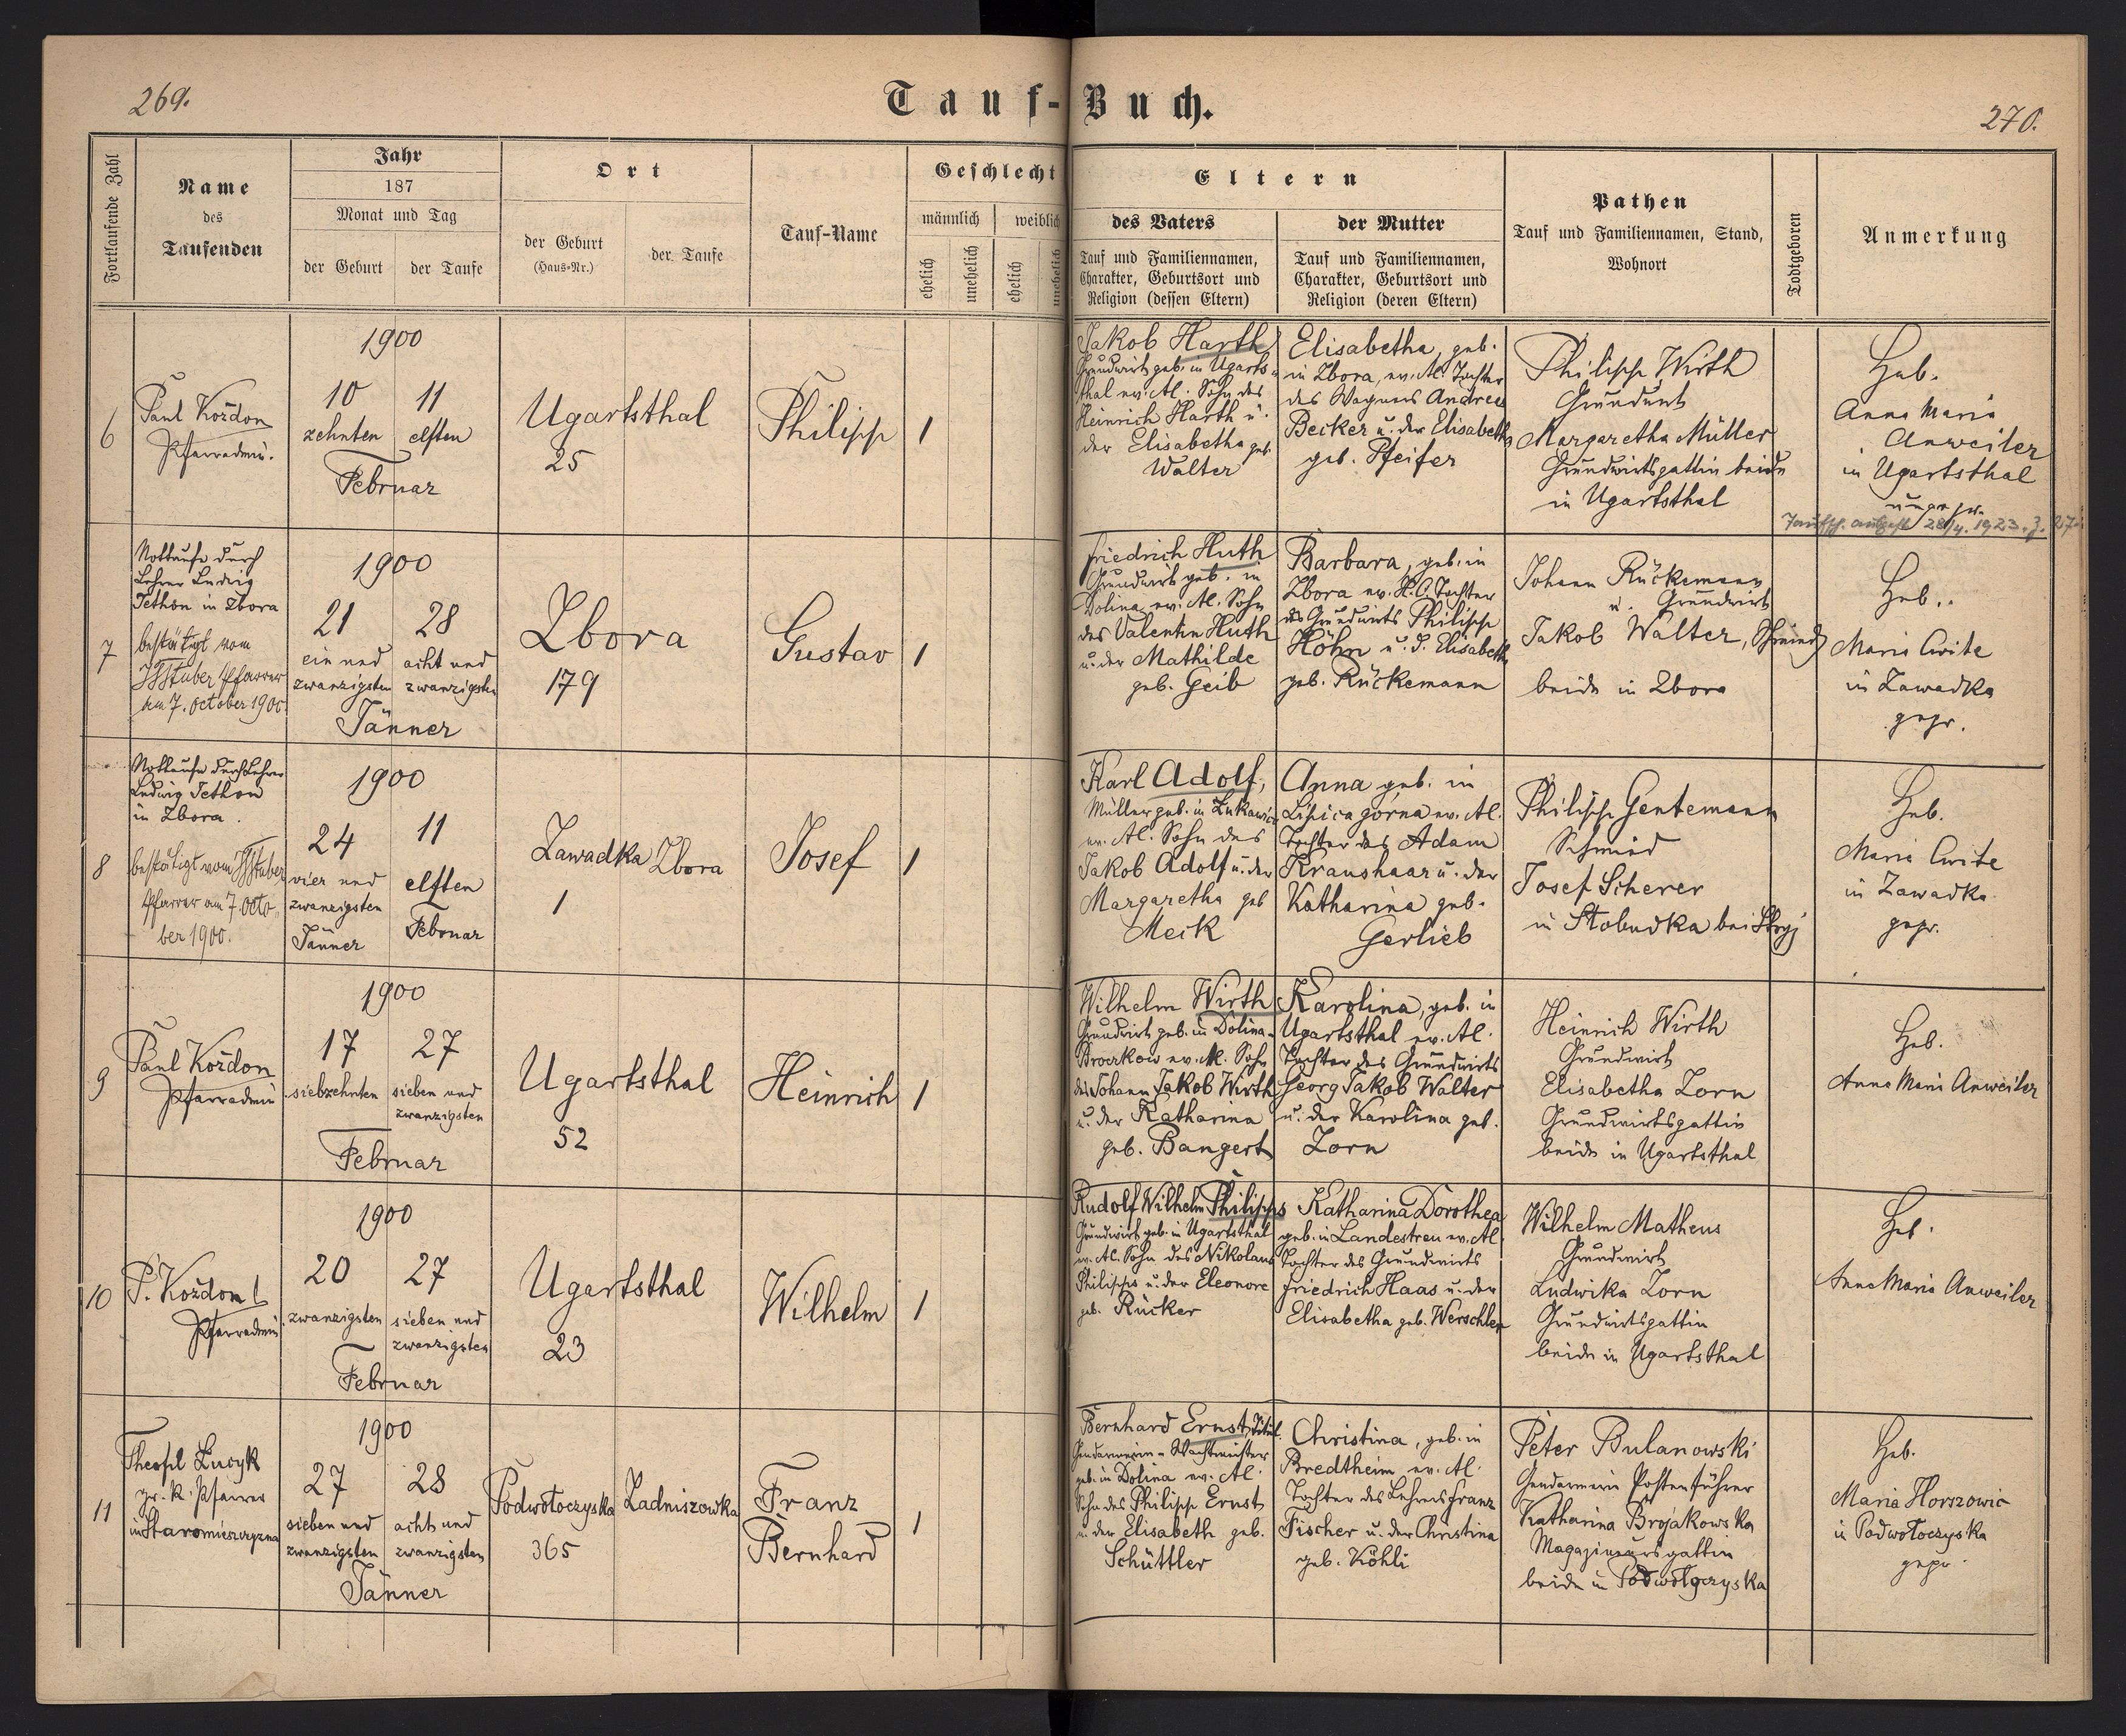 269.
Tauf-Buch.
270.
Fortlaufende Zahl
Name
des
Taufenden
Jahr
187
Monat und Tag
der Geburt
der Taufe
Ort
der Geburt
(Haus-Nr.)
der Taufe
Tauf-Name
Geschlecht
männlich
weiblich
ehelich
unehelich
ehelich
unehelich
Eltern
des Vaters
Tauf und Familiennamen,
Charakter, Geburtsort und
Religion (dessen Eltern)
der Mutter
Tauf und Familiennamen,
Charakter, Geburtsort und
Religion (deren Eltern)
Pathen
Tauf und Familiennamen, Stand,
Wohnort
Todtgeboren
Anmerkung
6
Paul Koždon
Pfarradmin.
1900
10
zehnten
11
elften
Februar
Ugartsthal
25
Philipp
1
Jakob Harth
Grundwirt geb. in Ugarts-
thal ev. Al. Sohn des
Heinrich Harth u.
der Elisabetha geb.
Walter
Elisabetha, geb.
in Zbora, ev. Al. Tochter
des Wagners Andreas
Becker u. der Elisabeth
geb. Pfeifer
Philipp Wirth
Grundwirt
Margaretha Müller
Grundwirtsgattin beide
in Ugartsthal
Heb.
Anna Maria
Anweiler
in Ugartsthal
ungepr.
Taufsch. ausgest. 28/4. 1923. Z. 27
7
Nottaufe durch
Lehrer Ludwig
Jethon in Zbora
bestätigt vom
Pfarrer
am 7. October 1900.
1900
21
ein und
zwanzigsten
28
acht und
zwanzigsten
Jänner
Zbora
179
Gustav
1
Friedrich Huth
Grundwirt geb. in
Dolina ev. Al. Sohn
des Valentin Huth
u. der Mathilde
geb. Geib
Barbara, geb. in
Zbora ev. H.C. Tochter
des Grundwirts Philipp
Höhn u. d. Elisabeth
geb. Rückemann
Johann Rückemann
u. Grundwirt
Jakob Walter, Schmied
beide in Zbora
Heb.
Maria Cwite
in Zawadka
gepr.
8
Nottaufe durch Lehrer
Ludwig Jethon
in Zbora.
bestätigt vom
Pfarrer am 7. Octo-
ber 1900.
1900
24
vier und
zwanzigsten
Jänner
11
elften
Februar
Zawadka
1
Zbora
Josef
1
Karl Adolf,
Müller geb. in
ev. Al. Sohn des
Jakob Adolf u. der
Margaretha geb
Meck
Anna geb. in
Lipica górna ev. Al.
Tochter des Adam
Kraushaar u. der
Katharina geb.
Gerlieb
Philipp Gentemann
Schmied
Josef Scherer
in Stobudka bei Stryj
Heb.
Maria Cwite
in Zawadka
gepr.
9
Paul Koždon
Pfarradmin
1900
17
siebzehnten
27
sieben und
zwanzigsten
Februar
Ugartsthal
52
Heinrich
1
Wilhelm Wirth
Grundwirt geb. in Dolina-
Broczkow ev. Al. Sohn
des Johann Jakob Wirth
u. der Katharina
geb. Bangert
Karolina, geb. in
Ugartsthal ev. Al.
Tochter des Grundwirts
Georg Jakob Walter
u. der Karolina geb.
Zorn
Heinrich Wirth
Grundwirt
Elisabetha Zorn
Grundwirtsgattin
beide in Ugartsthal
Heb.
Anna Maria Anweiler
10
P. Koždon
Pfarradmin
1900
20
zwanzigsten
27
sieben und
zwanzigsten
Februar
Ugartsthal
23
Wilhelm
1
Rudolf Wilhelm Philipps
Grundwirt geb. in Ugartsthal
ev. Al. Sohn des Nikolaus
Philipps u. der Eleonore
geb. Rücker
Katharina Dorothea
geb. in Landestreu ev. Al.
Tochter des Grundwirts
Friedrich Haas u. der
Elisabetha geb. Werschler
Wilhelm Matheus
Grundwirt
Ludwika Zorn
Grundwirtsgattin
beide in Ugartsthal
Heb.
Anna Maria Anweiler
11
Theofil Lucyk
gr. k. Pfarrer
in Staromieszczyzna
1900
27
sieben und
zwanzigsten
28
acht und
zwanzigsten
Jänner
Podwołoczyska
365
Zadniszowka
Franz
Bernhard
1
Bernhard Ernst, Titul.
Gendarmerie-Wachtmeister
geb. in Dolina ev. Al.
Sohn des Philipp Ernst
u. der Elisabeth geb.
Schüttler
Christina, geb. in
Bredtheim ev. Al.
Tochter des Lehrers Franz
Fischer u. der Christina
geb. Köhli
Peter Bulanowski
Gendarmerie Postenführer
Katharina Brojakowska
Magazineursgattin
beide in Podwołoczyska
Heb.
Maria Horszowic
in Podwołoczyska
gepr.